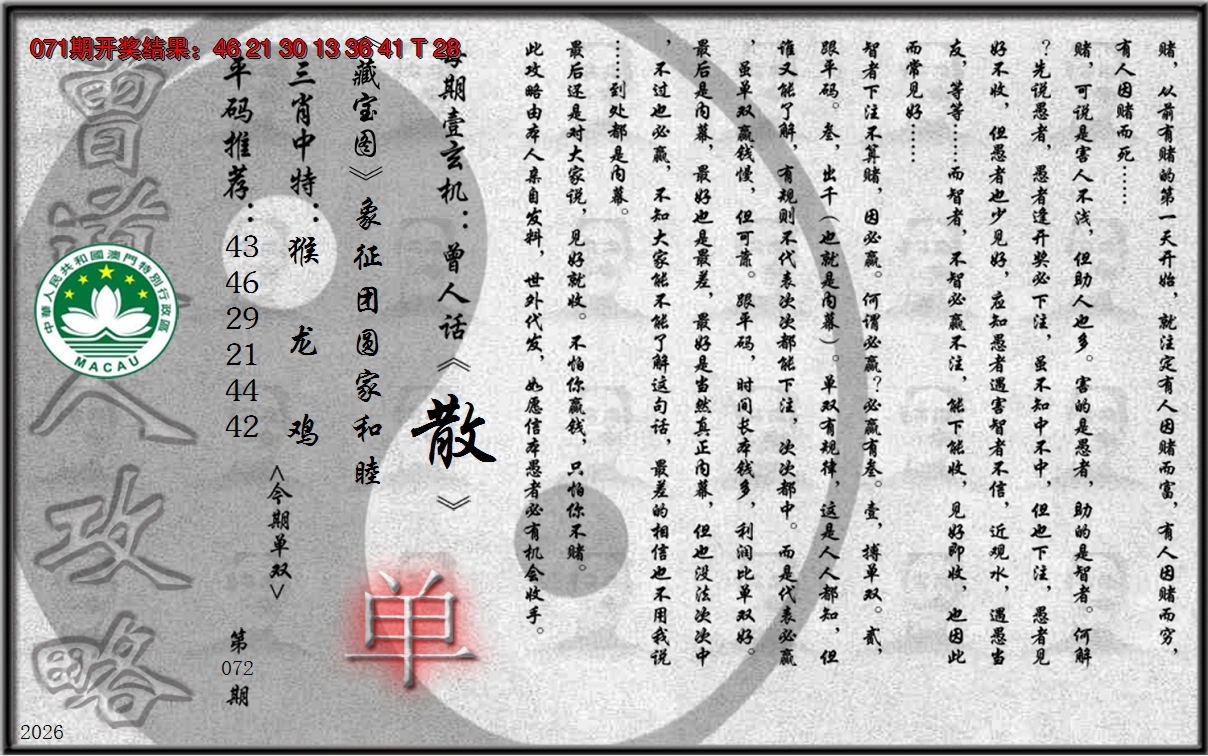 071期开奖结果：46 21 30 13 36 41 T 28
赌，从前有赌的第一天开始，就注定有人因赌而富，有人因赌而穷，
有人因赌而死……
赌，可说是害人不浅，但助人也多。害的是愚者，助的是智者。何解
？先说愚者，愚者逢开奖必下注，虽不知中不中，但也下注，愚者见
好不收，但愚者也少见好，应知愚者遇害智者不信，近观水，遇愚当
友，等等……而智者，不智必赢不注，能下能收，见好即收，也因此
而常见好……
智者下注不算赌，因必赢。何谓必赢？必赢有叁。壹，搏单双。贰，
跟平码。叁，出千（也就是内幕）。单双有规律，这是人人都知，但
谁又能了解，有规则不代表次次都能下注，次次都中。而是代表必赢
，虽单双赢钱慢，但可靠。跟平码，时间长本钱多，利润比单双好。
最后是内幕，最好也是最差，最好是当然真正内幕，但也没法次次中
，不过也必赢，不知大家能不能了解这句话，最差的相信也不用我说
……到处都是内幕。
最后还是对大家说，见好就收。不怕你赢钱，只怕你不赌。
此攻略由本人亲自发料，世外代发，如愿信本愚者必有机会收手。
每期壹玄机：曾人话《散》
《藏宝图》象征团圆家和睦
单
三肖中特：猴 龙 鸡
<今期单双>
平码推荐：43 46 29 21 44 42
第072期
曾道人攻略
中華人民共和國澳門特別行政區
MACAU
2026